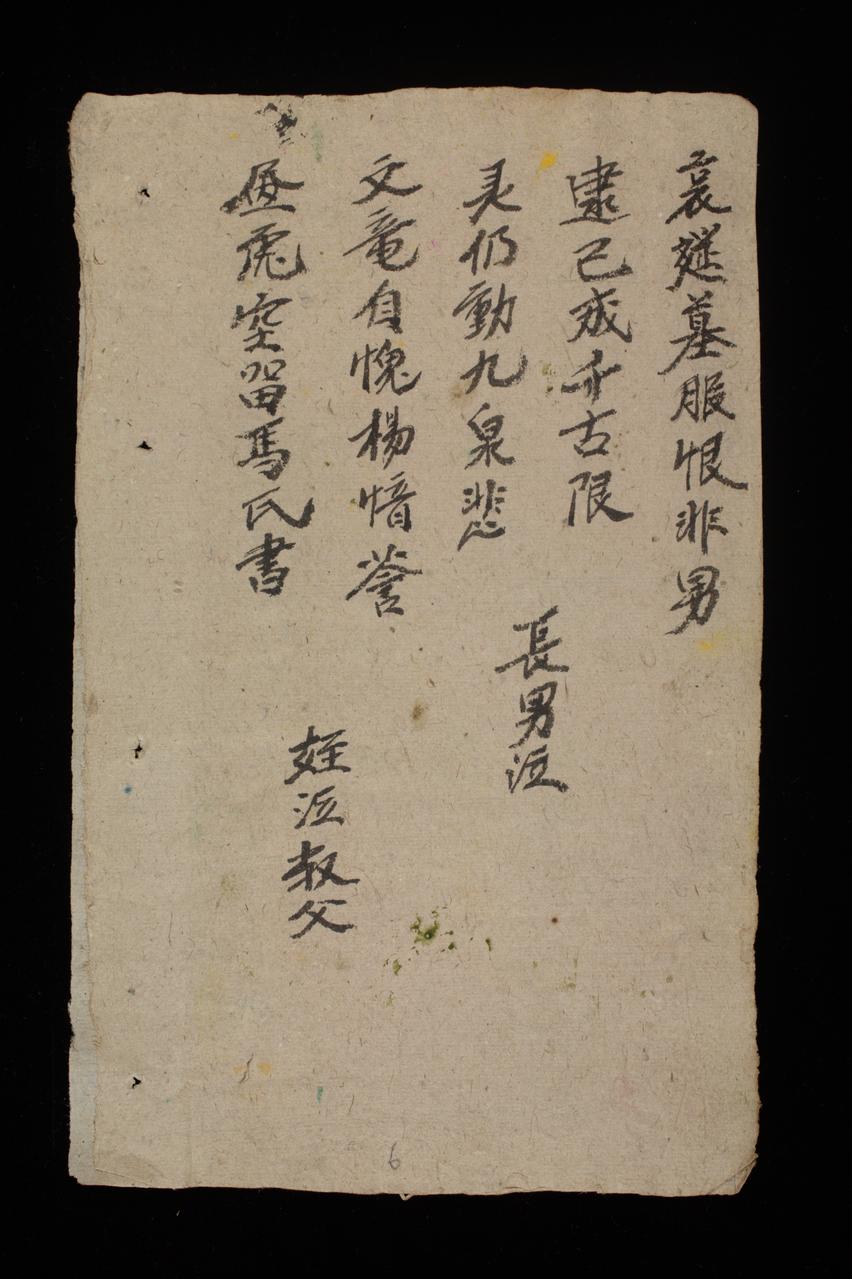 哀筵墓服恨非男
逮己成千古限
灵仍動九泉悲
長男泣
文竜自愧楊愔誉
虎空留馬氏書
姪泣叔父
6